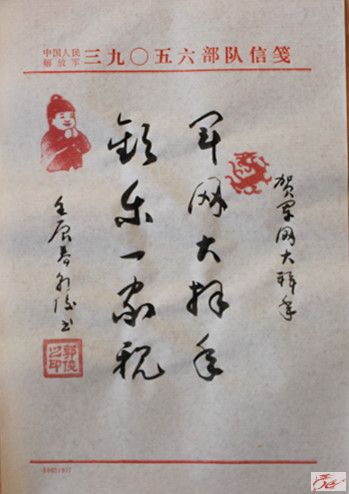 中国人民
解放军
三九〇五六部队信笺
贺军网大拜年
军网大拜年
歡乐一家親
壬辰春郭俊书
郭俊之印